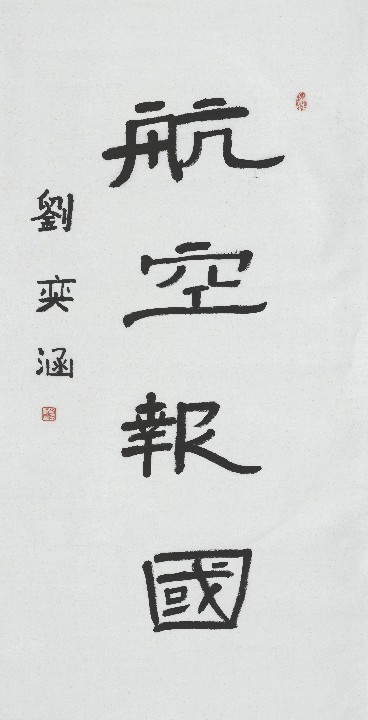 航空報國
劉奕涵